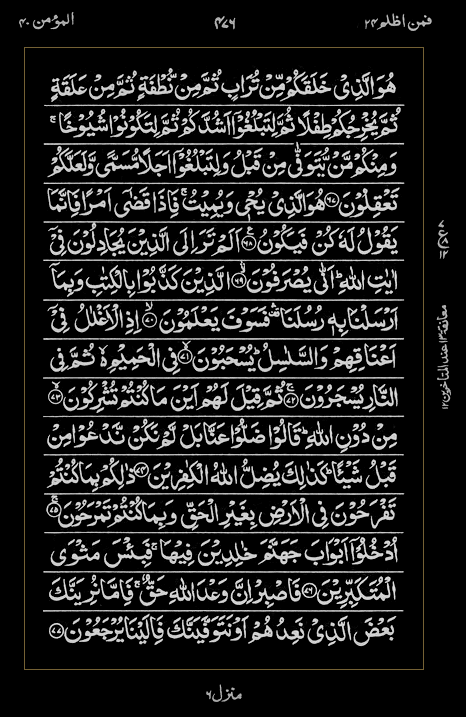 فمن اظلم ٢٤ ٤٧٦ المؤمن ٤٠
هُوَ الَّذِیْ خَلَقَكُمْ مِّنْ تُرَابٍ ثُمَّ مِنْ نُّطْفَةٍ ثُمَّ مِنْ عَلَقَةٍ
ثُمَّ یُخْرِجُكُمْ طِفْلًا ثُمَّ لِتَبْلُغُوْۤا اَشُدَّكُمْ ثُمَّ لِتَكُوْنُوْا شُیُوْخًا ۚ
وَ مِنْكُمْ مَّنْ یُّتَوَفّٰی مِنْ قَبْلُ وَ لِتَبْلُغُوْۤا اَجَلًا مُّسَمًّی وَّ لَعَلَّكُمْ
تَعْقِلُوْنَ ﴿٦٧﴾ هُوَ الَّذِیْ یُحْیٖ وَ یُمِیْتُ ۚ فَاِذَا قَضٰۤی اَمْرًا فَاِنَّمَا
یَقُوْلُ لَهٗ كُنْ فَیَكُوْنُ ﴿٦٨﴾ اَلَمْ تَرَ اِلَی الَّذِیْنَ یُجَادِلُوْنَ فِیْۤ
اٰیٰتِ اللّٰهِ ؕ اَنّٰی یُصْرَفُوْنَ ﴿٦٩﴾ الَّذِیْنَ كَذَّبُوْا بِالْكِتٰبِ وَ بِمَاۤ
اَرْسَلْنَا بِهٖ رُسُلَنَا ۛ فَسَوْفَ یَعْلَمُوْنَ ﴿٧٠﴾ اِذِ الْاَغْلٰلُ فِیْۤ
اَعْنَاقِهِمْ وَ السَّلٰسِلُ ؕ یُسْحَبُوْنَ ﴿٧١﴾ فِی الْحَمِیْمِ ۙ ثُمَّ فِی
النَّارِ یُسْجَرُوْنَ ﴿٧٢﴾ ثُمَّ قِیْلَ لَهُمْ اَیْنَ مَا كُنْتُمْ تُشْرِكُوْنَ ﴿٧٣﴾
مِنْ دُوْنِ اللّٰهِ ؕ قَالُوْا ضَلُّوْا عَنَّا بَلْ لَّمْ نَكُنْ نَّدْعُوْا مِنْ
قَبْلُ شَیْـًٔا ؕ كَذٰلِكَ یُضِلُّ اللّٰهُ الْكٰفِرِیْنَ ﴿٧٤﴾ ذٰلِكُمْ بِمَا كُنْتُمْ
تَفْرَحُوْنَ فِی الْاَرْضِ بِغَیْرِ الْحَقِّ وَ بِمَا كُنْتُمْ تَمْرَحُوْنَ ﴿٧٥﴾
اُدْخُلُوْۤا اَبْوَابَ جَهَنَّمَ خٰلِدِیْنَ فِیْهَا ۚ فَبِئْسَ مَثْوَی
الْمُتَكَبِّرِیْنَ ﴿٧٦﴾ فَاصْبِرْ اِنَّ وَعْدَ اللّٰهِ حَقٌّ ۚ فَاِمَّا نُرِیَنَّكَ
بَعْضَ الَّذِیْ نَعِدُهُمْ اَوْ نَتَوَفَّیَنَّكَ فَاِلَیْنَا یُرْجَعُوْنَ ﴿٧٧﴾
معانقة ١٣ عند المتاخرین ١٢
منزل ٦